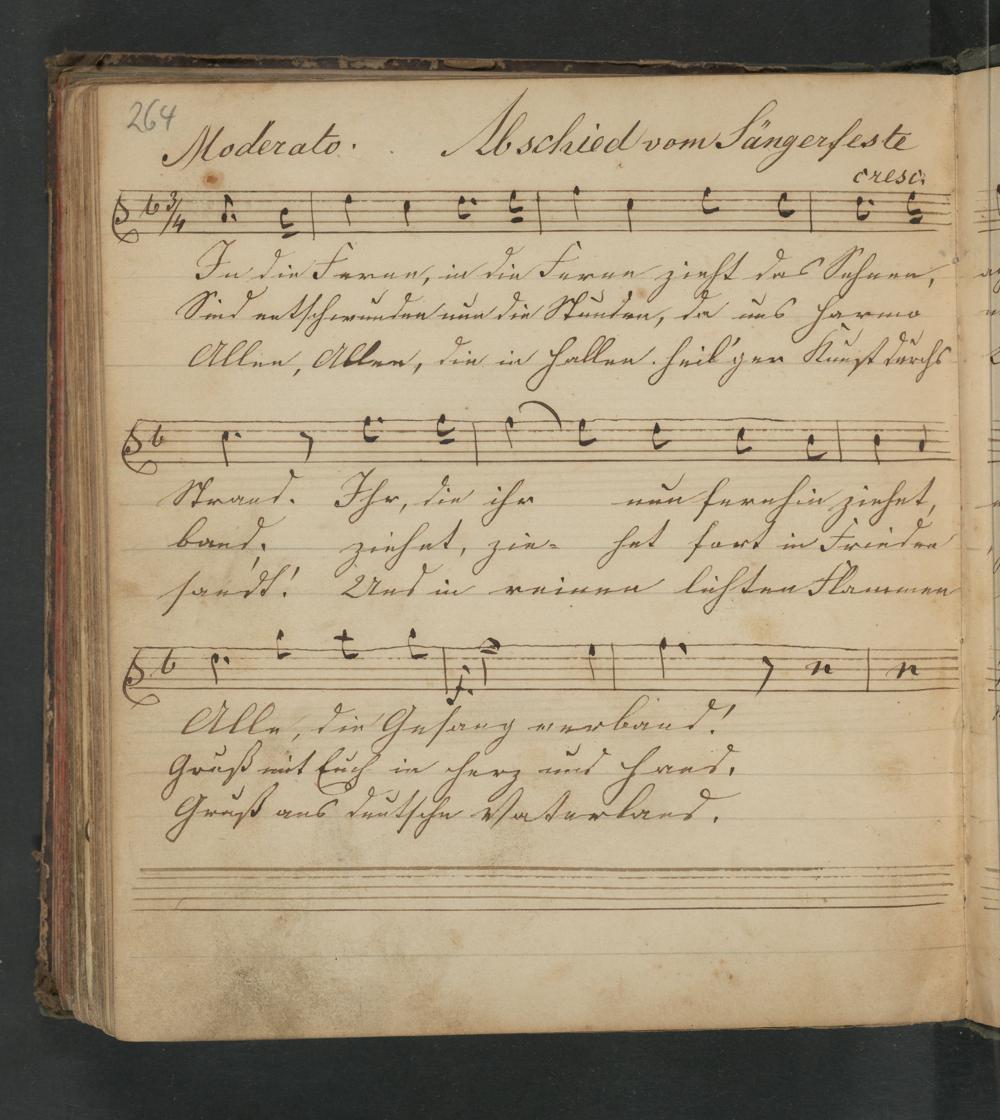 264
Moderato. Abschied vom Sängerfeste
cresc:
3/4
In die Ferne, in die Ferne zieht das Sehnen,
Sind entschwunden nun die Stunden, da uns Harmo
Allen, Allen, die in Hallen heil'ger Kunst durchs
Strand. Ihr, die ihr nun fernhin ziehet,
band; ziehet, zie= het fort in Frieden
sandt! Und in reinen lichten Flammen
f.
Alle, die Gesang verband!
Gruß mit Euch in Herz und Hand.
Gruß ans deutsche Vaterland.